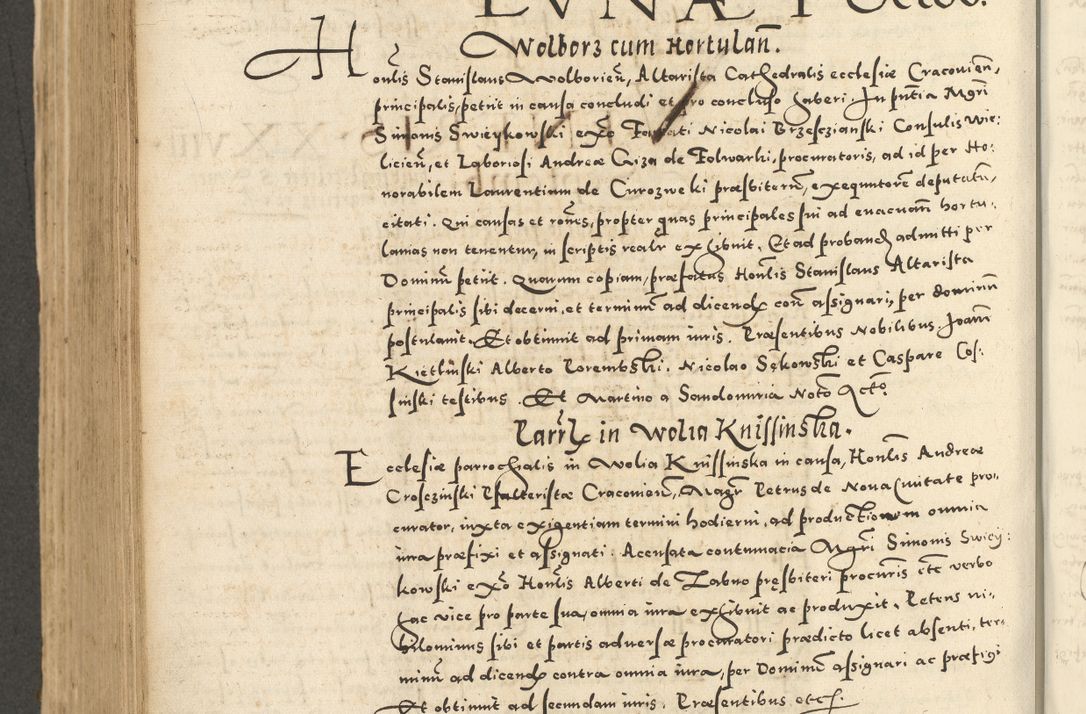 LVNÆ I Octob:
Wolborz cum Hortulañ.
Honlis Stanislaus Wolborień, Altarista Cathedralis ecclesiæ Cracovień,
principalis, petiit in causa concludi et pro concluso haberi. In pñtia Mgri
Simonis Swięykowski exão Famati Nicolai Brzesczianski Consulis Wie-
licień, et Laboriosi Andreæ Giza de Folwarki, procuratoris, ad id per Ho-
norabilem Laurentium de Curozweki præsbiterum, exequutorē deputatū,
citati. Qui causas et rônes, propter quas principales sui ad evacuañ hortu-
lanias non tenentur, in scriptis realr exhibuit. Et ad proband admitti per
Dominū petiit. Quarum copiam, præfatus Honlis Stanislaus Altarista
principalis sibi decerni, et terminū ad dicend con assignari, per dominū
postulavit. Et obtinuit ad primam iuris. Præsentibus Nobilibus Joanne
Kietlinski Alberto Porembski. Nicolao Sękowski et Caspare Cos-
sinski testibus. Et Martino a Sandomiria Noto Acto.
Parrlx in Wolia Knissinska.
Ecclesiæ parrochialis in Wolia Knissinska in causa, Honlis Andreæ
Crosczinski Psalteristæ Cracovień, Magr Petrus de Nova Civitate pro-
curator, iuxta exigentiam termini hodierni, ad productionem omnia
iura præfixi et assignati. Accusata contumacia Mgri Simonis Swięy-
kowski exão Honlis Alberti de Zabno pręsbiteri procuris etc verbo
hac vice pro parte sua, omnia iura exhibuit ac produxit. Petens ni-
hilominus sibi et partis adversæ procuratori prædicto licet absenti, ter-
minū ad dicend contra omnia iura, per Dominū assignari ac præfigi
Et obtinuit ad secundam iuris. Præsentibus etc.